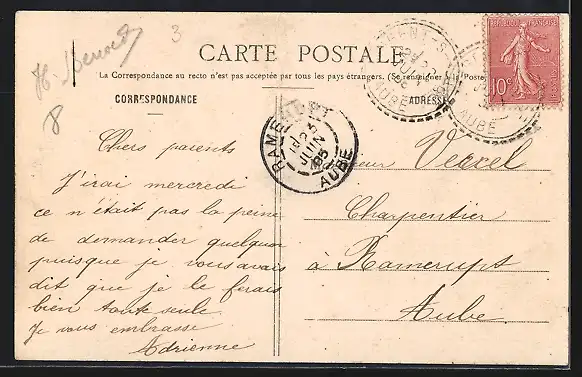 CARTE POSTALE
La Correspondance au recto n'est pas acceptée par tous les pays étrangers. (Se renseigner à la Poste
CORRESPONDANCE
ADRESSE
REPUBLIQUE FRANÇAISE
10c
AUBE
AUBE
3
8
RAMERUPT
25
JUIN
05
AUBE
Chers parents
J'irai mercredi
ce n'était pas la peine
de demander quelquun
puisque je vous avais
dit que je le ferais
bien toute seule.
Je vous embrasse
Adrienne
Vercel
Charpentier
à Ramerupt
Aube